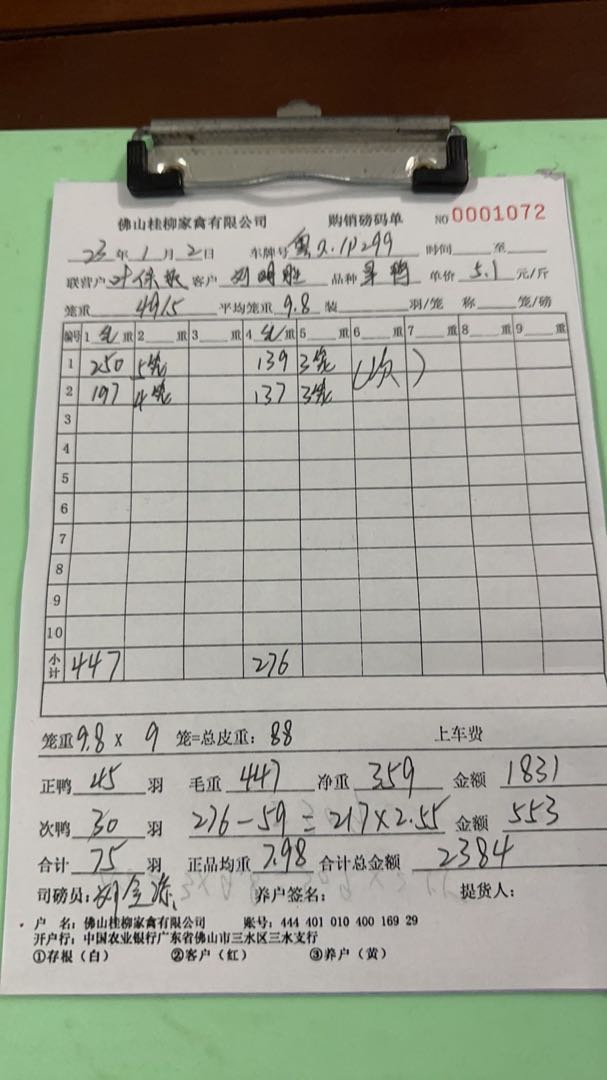 佛山桂柳家禽有限公司 购销磅码单 NO 0001072
23年1月2日 车牌号 时间 至
联营户 客户 刘明胜 品种 单价 5.1 元/斤
笼重 49/5 平均笼重 9.8 装 羽/笼 称 笼/磅
编号 1 毛 重 2 重 3 重 4 毛 重 5 重 6 重 7 重 8 重 9 重
1 250 5笼 139 3笼 (次)
2 197 4笼 137 3笼
3
4
5
6
7
8
9
10
小计 447 276
笼重 9.8 x 9 笼=总皮重: 88 上车费
正鸭 45 羽 毛重 447 净重 359 金额 1831
次鸭 30 羽 276-59=217×2.55 金额 553
合计 75 羽 正品均重 7.98 合计总金额 2384
司磅员: 养户签名: 提货人:
户 名: 佛山桂柳家禽有限公司 账号: 444 401 010 400 169 29
开户行: 中国农业银行广东省佛山市三水区三水支行
①存根(白) ②客户(红) ③养户(黄)